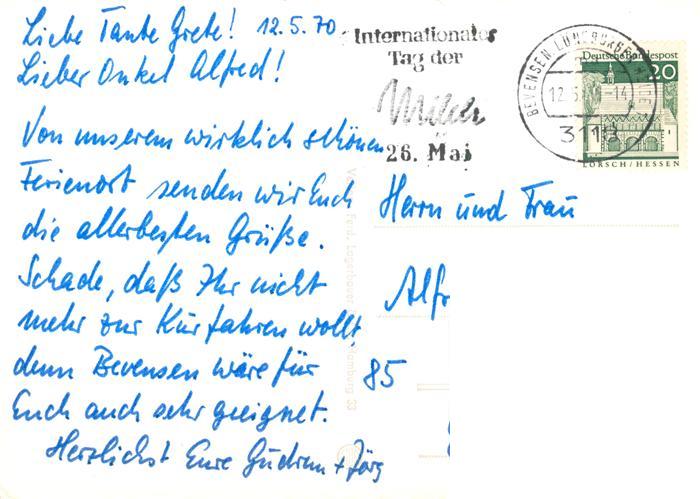 Liebe Tante Grete! 12.5.70
Lieber Onkel Alfred!
Von unserem wirklich schönen
Ferienort senden wir Euch
die allerbesten Grüße.
Schade, daß Ihr nicht
mehr zur Kur fahren wollt,
denn Bevensen wäre für
Euch auch sehr geeignet.
Herzlichst Eure Gudrun + Jörg
Internationaler
Tag der
Milch
26. Mai
BEVENSEN
12.5.
-14
3118
Deutsche Bundespost
20
LORSCH/HESSEN
Herrn und Frau
Alfr
85
Hamburg 33